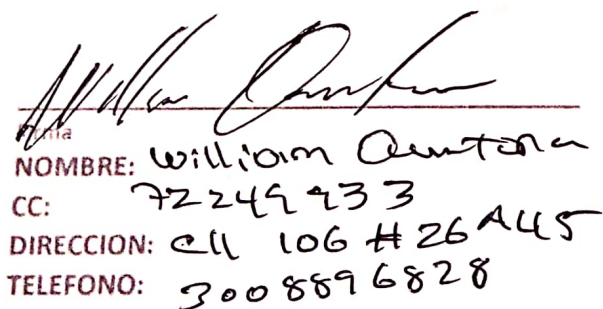 William Quintana
Firma
NOMBRE: William Quintana
CC: 72249933
DIRECCION: Cll 106 # 26 A45
TELEFONO: 3008896828